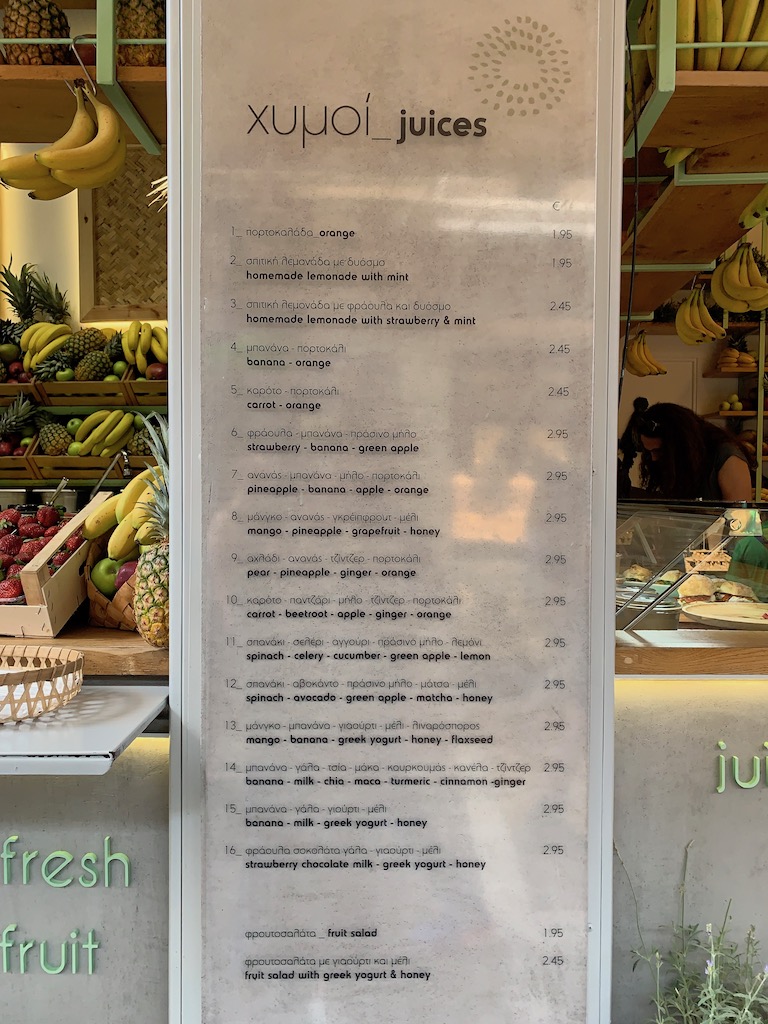 χυμοί_juices
€
1_ πορτοκαλάδα_orange 1.95
2_ σπιτική λεμονάδα με δυόσμο 1.95
homemade lemonade with mint
3_ σπιτική λεμονάδα με φράουλα και δυόσμο 2.45
homemade lemonade with strawberry & mint
4_ μπανάνα - πορτοκάλι 2.45
banana - orange
5_ καρότο - πορτοκάλι 2.45
carrot - orange
6_ φράουλα - μπανάνα - πράσινο μήλο 2.95
strawberry - banana - green apple
7_ ανανάς - μπανάνα - μήλο - πορτοκάλι 2.95
pineapple - banana - apple - orange
8_ μάνγκο - ανανάς - γκρέιπφρουτ - μέλι 2.95
mango - pineapple - grapefruit - honey
9_ αχλάδι - ανανάς - τζίντζερ - πορτοκάλι 2.95
pear - pineapple - ginger - orange
10_ καρότο - παντζάρι - μήλο - τζίντζερ - πορτοκάλι 2.95
carrot - beetroot - apple - ginger - orange
11_ σπανάκι - σέλερι - αγγούρι - πράσινο μήλο - λεμόνι 2.95
spinach - celery - cucumber - green apple - lemon
12_ σπανάκι - αβοκάντο - πράσινο μήλο - μάτσα - μέλι 2.95
spinach - avocado - green apple - matcha - honey
13_ μάνγκο - μπανάνα - γιαούρτι - μέλι - λιναρόσπορος 2.95
mango - banana - greek yogurt - honey - flaxseed
14_ μπανάνα - γάλα - τσία - μάκα - κουρκουμάς - κανέλα - τζίντζερ 2.95
banana - milk - chia - maca - turmeric - cinnamon -ginger
15_ μπανάνα - γάλα - γιούρτι - μέλι 2.95
banana - milk - greek yogurt - honey
16_ φράουλα σοκολάτα γάλα - γιαούρτι - μέλι 2.95
strawberry chocolate milk - greek yogurt - honey
φρουτοσαλάτα _ fruit salad 1.95
φρουτοσαλάτα με γιαούρτι και μέλι 2.45
fruit salad with greek yogurt & honey
fresh
fruit
jui